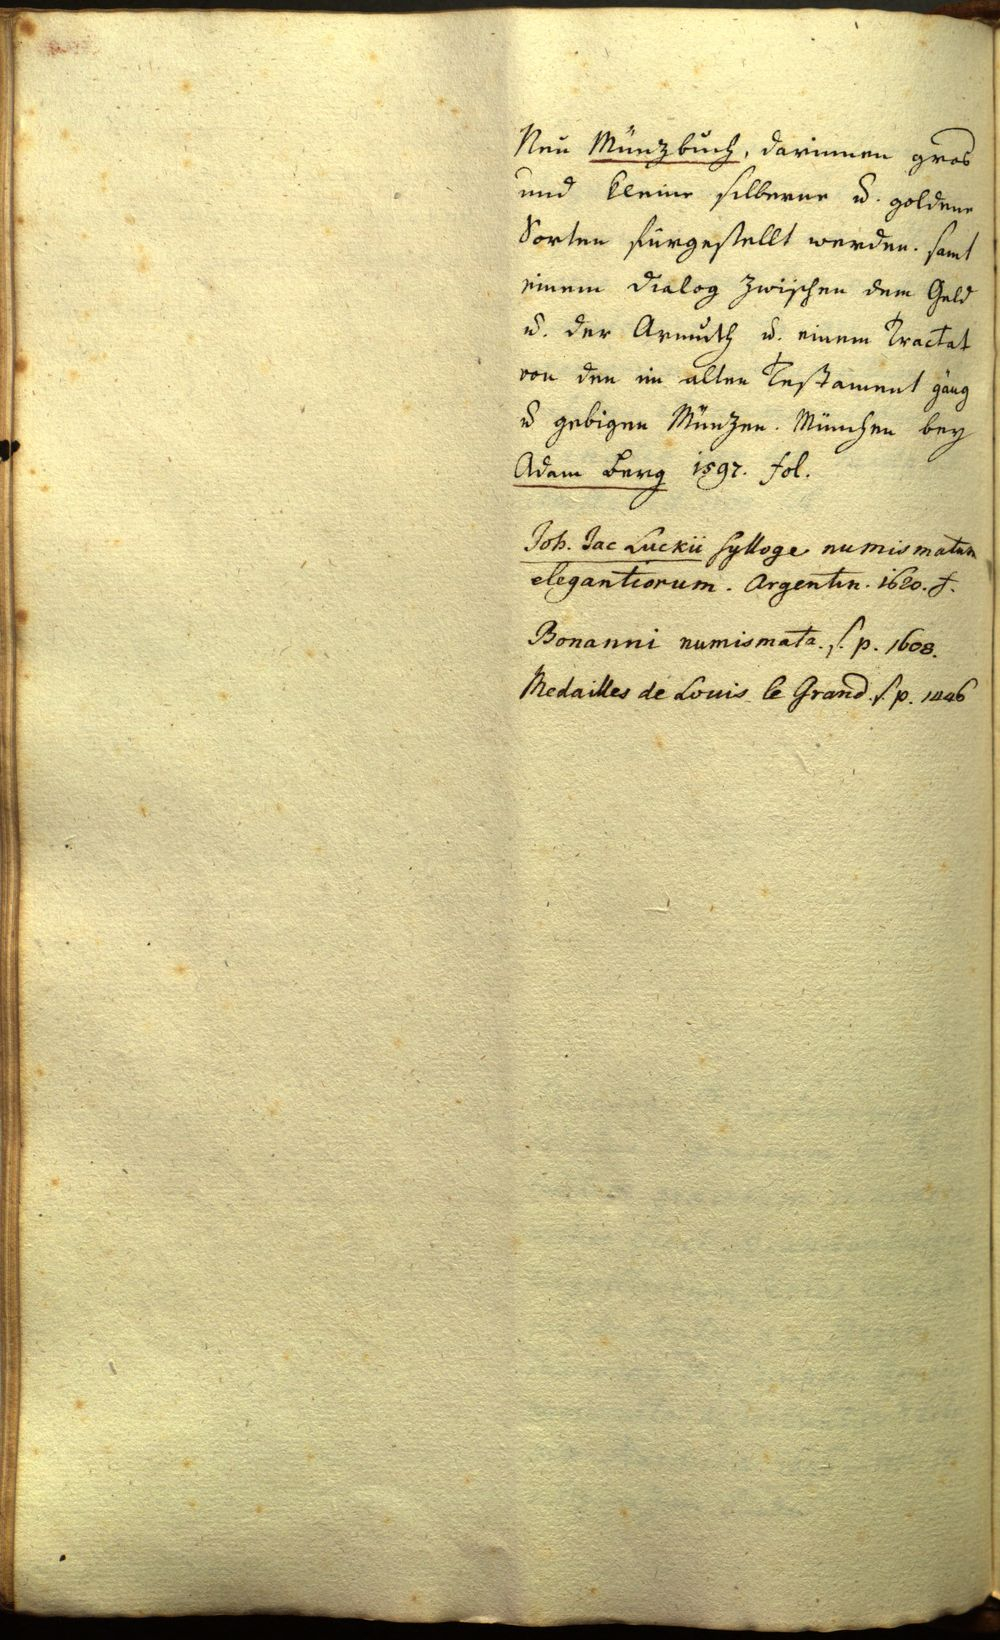 Neu Münzbuch, darinnen gros
und kleine silberne u. goldene
Sorten fürgestellt werden. samt
einem Dialog zwischen dem Geld
u. der Armuth u. einem Tractat
von den im alten Testament gäng
u gebigen Münzen. München bey
Adam Berg 1597. fol.
Joh. Jac Luckii Sylloge numismatum
elegantiorum. Argentin. 1620. f.
Bonanni numismata. s. p. 1608.
Medailles de Louis le Grand. s. p. 1446